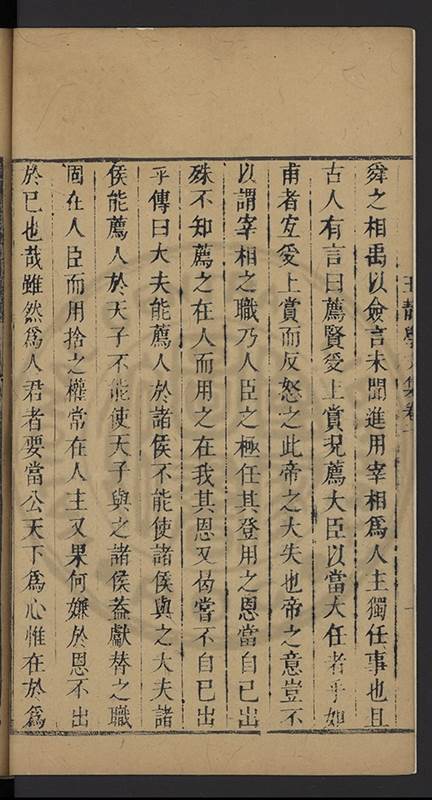 舜之相禹以僉言未聞進用宰相爲人主獨任事也且
古人有言曰薦賢受上賞況薦大臣以當大任者乎如
甫者宜受上賞而反怒之此帝之大失也帝之意豈不
以謂宰相之職乃人臣之極任其登用之恩當自已出
殊不知薦之在人而用之在我其恩又曷嘗不自已出
乎傳曰大夫能薦人於諸侯不能使諸侯與之大夫諸
侯能薦人於天子不能使天子與之諸侯葢獻替之職
固在人臣而用捨之權常在人主又果何嫌於恩不出
於已也哉雖然爲人君者要當公天下爲心惟在於爲